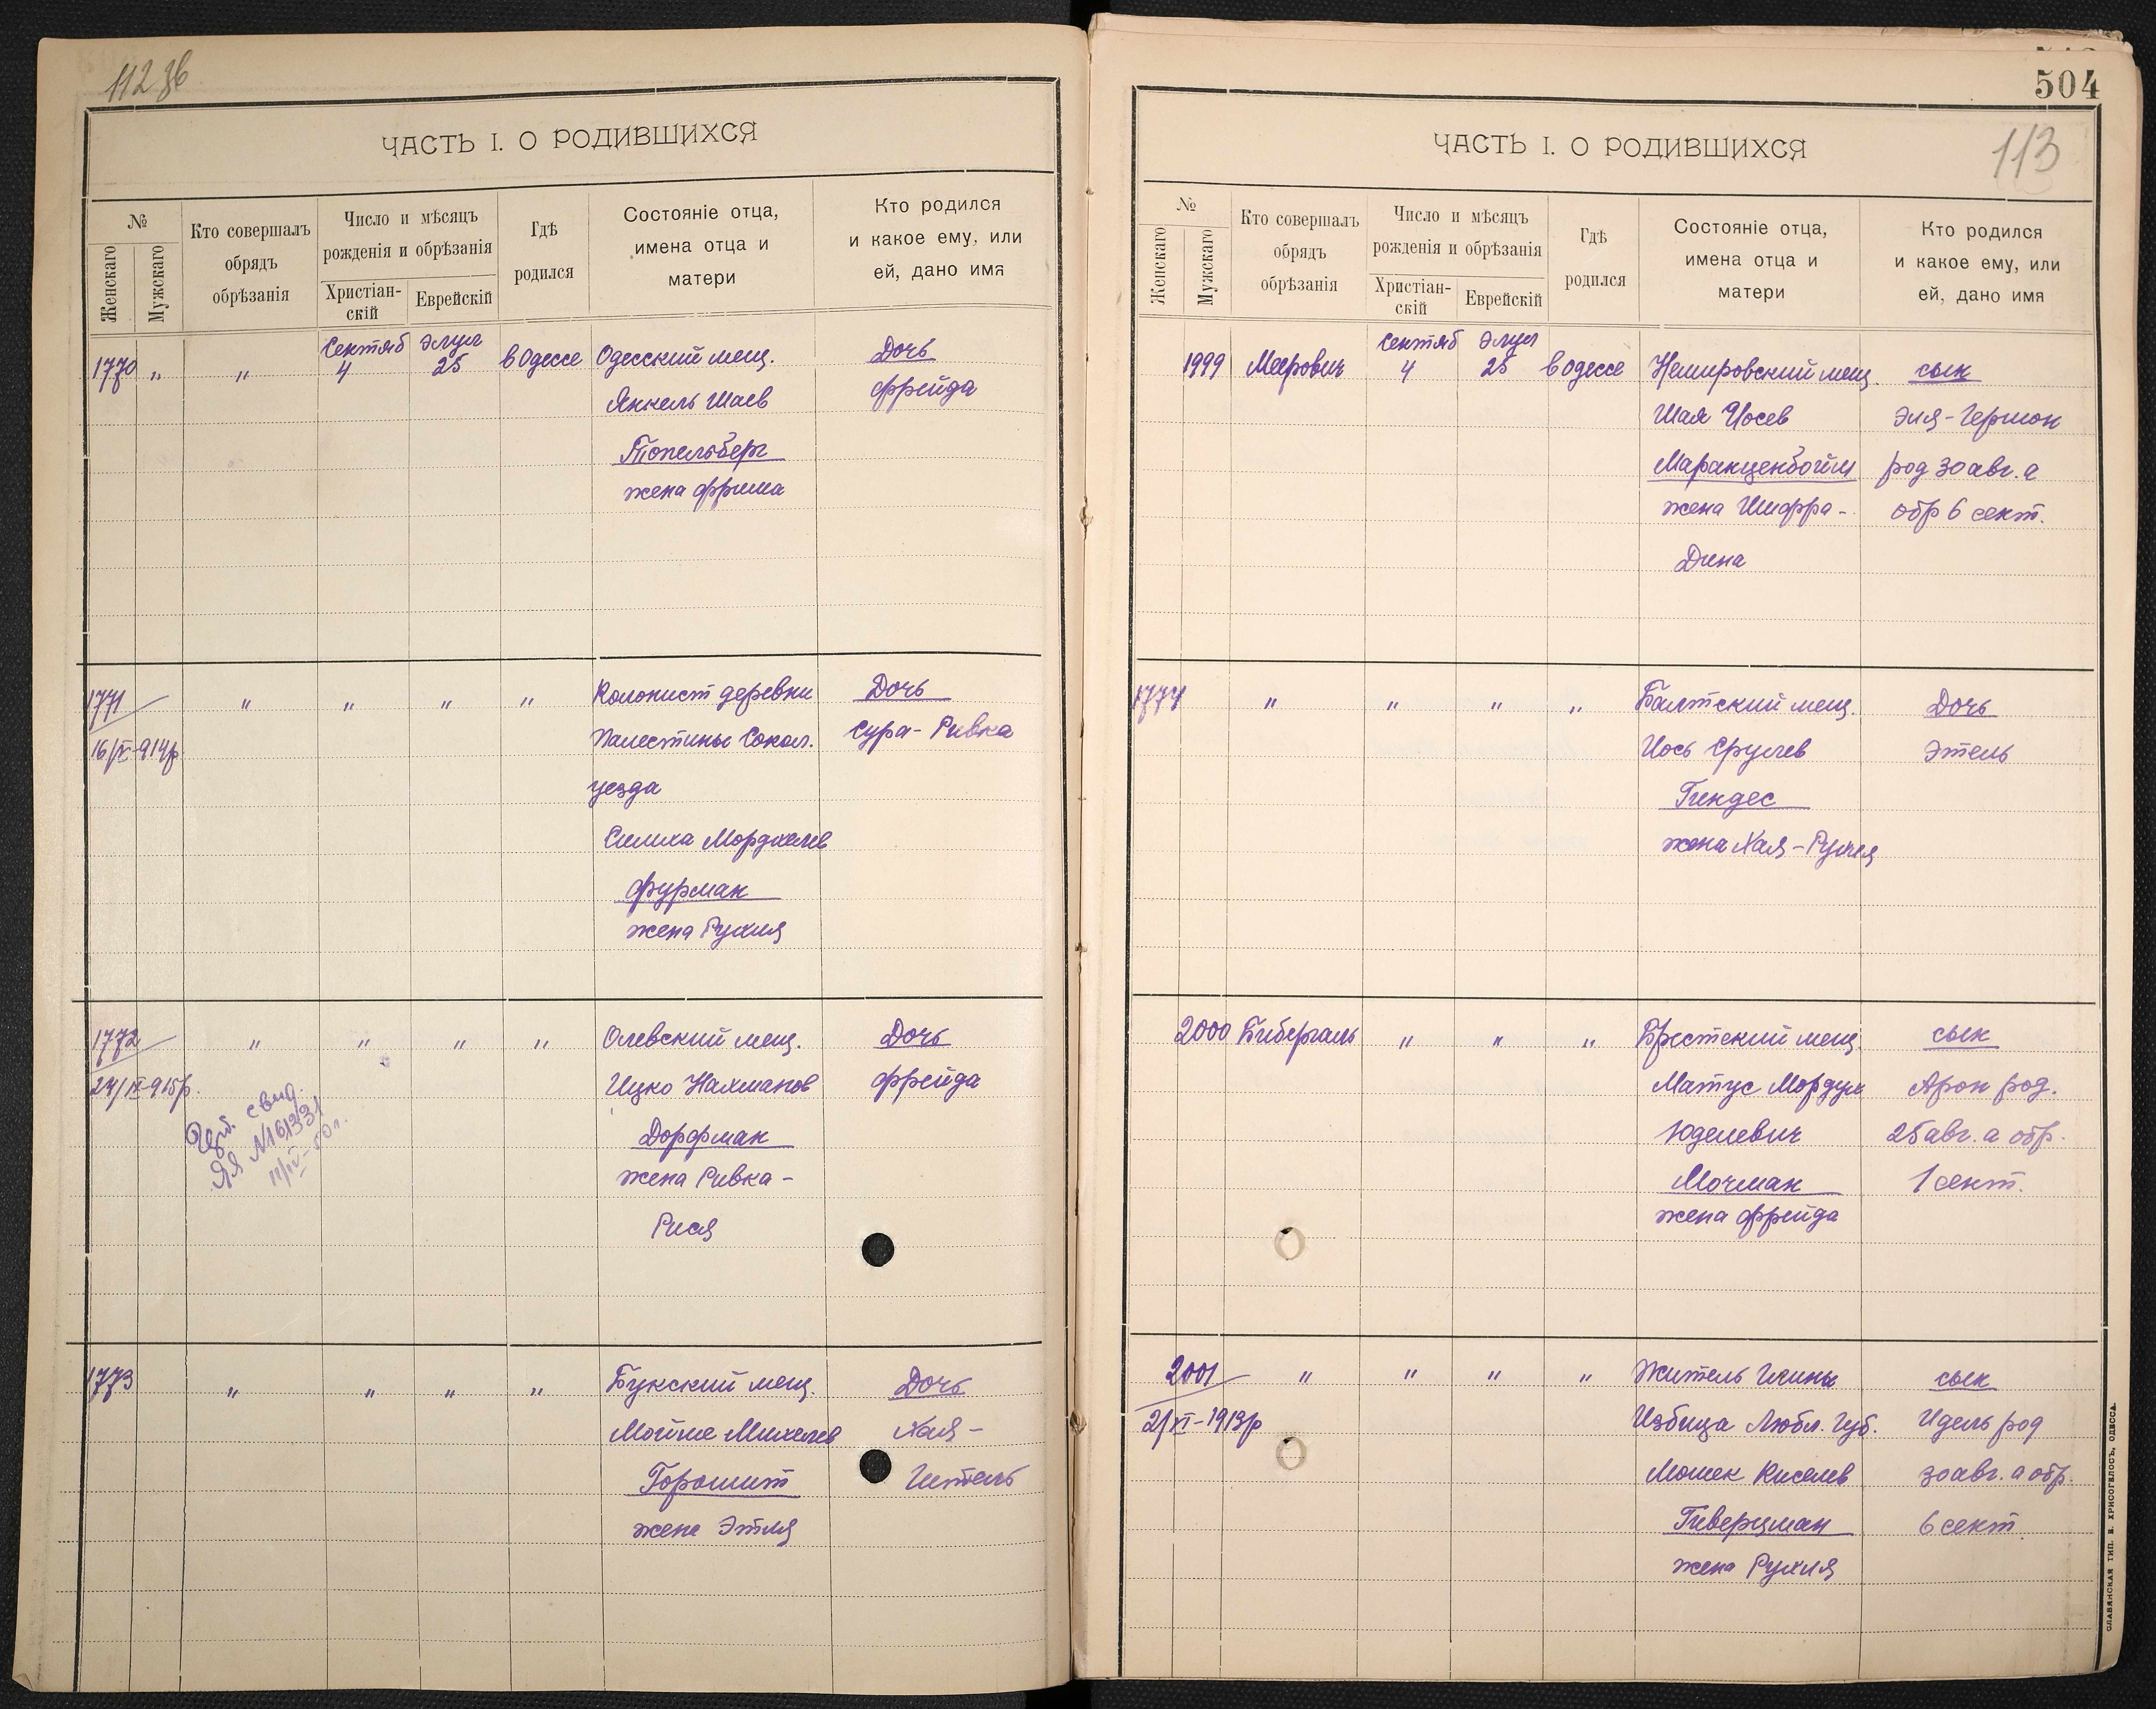 112 зв
ЧАСТЬ I. О РОДИВШИХСЯ
№
Женскаго
Мужскаго
Кто совершалъ
обрядъ
обрѣзанія
Число и мѣсяцъ
рожденія и обрѣзанія
Христіан-
скій
Еврейскій
Гдѣ
родился
Состояніе отца,
имена отца и
матери
Кто родился
и какое ему, или
ей, дано имя
Сентяб Элул
1770 " " 4 25 в Одессе Одесский мещ. Дочь
Янкель Шаев Фрейда
Топельберг
жена Фрима
1771 " " " " Колонист деревни Дочь
16/X-914р Палестины Сокол. Сура-Ривка
уезда
Симха Мордкелев
Фурман
жена Рухля
1772 " " " " Олевский мещ. Дочь
24/IX-915р. Ицко Нахманов Фрейда
свид.
Дорфман
жена Ривка-
Рися
1773 " " " " Букский мещ. Дочь
Мойше Михелев Хая-
Горошит Гитель
жена Этля
504
113
ЧАСТЬ I. О РОДИВШИХСЯ
№
Женскаго
Мужскаго
Кто совершалъ
обрядъ
обрѣзанія
Число и мѣсяцъ
рожденія и обрѣзанія
Христіан-
скій
Еврейскій
Гдѣ
родился
Состояніе отца,
имена отца и
матери
Кто родился
и какое ему, или
ей, дано имя
Сентяб Элул
1999 Меерович 4 25 в Одессе Немировский мещ. сын
Шая Иосев Эля-Гершон
Маранценбойм род 30 авг. а
жена Шифра- обр 6 сент.
Дина
1774 " " " " Балтский мещ. Дочь
Иось Срулев Этель
Гиндес
жена Хая-Рухля
2000 Бибергаль " " " Брестский мещ. сын
Матус Мордух Арон род.
Юделевич 25 авг. а обр.
Мочман 1 сент.
жена Фрейда
2001 " " " " Житель Гмины сын
2/XI-1913р Избица Любл. Губ. Идель род
Мошек Киселев 30 авг. а обр.
Гиверцман 6 сент.
жена Рухля
СЛАВЯНСКАЯ ТИП. Н. ХРИСОГЕЛОСЪ, ОДЕССА.